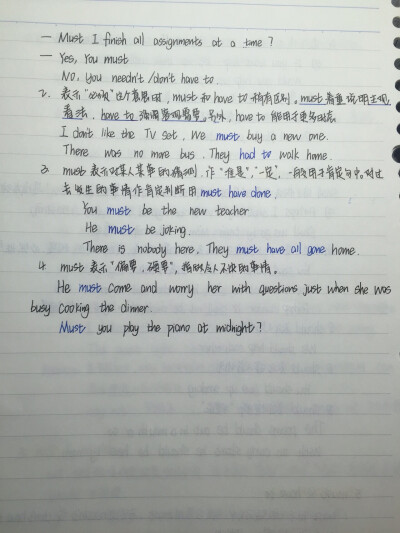 — Must I finish all assignments at a time?
— Yes, You must
No, You needn't / don't have to.
2. 表示"必须"这个意思时, must 和 have to 稍有区别。must 着重说明主观
看法, have to 强调客观需要。另外, have to 能用于更多时态
I don't like the TV set, We must buy a new one.
There was no more bus. They had to walk home.
3. must 表示对某人某事的猜测, 作"准是", "一定", 一般用于肯定句中。对过
去发生的事情作肯定判断用 must have done,
You must be the new teacher
He must be joking.
There is nobody here. They must have all gone home.
4. must 表示"偏要, 硬要", 指做令人不快的事情。
He must come and worry her with questions just when she was
busy cooking the dinner.
Must you play the piano at midnight?